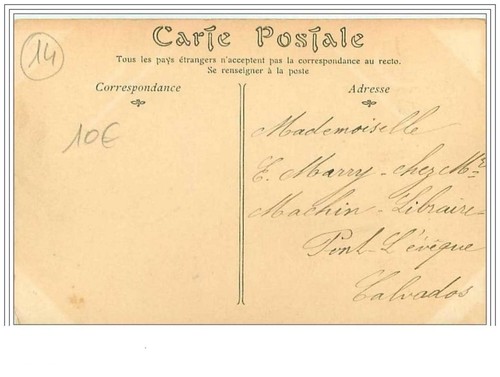 14
Carte Postale
Tous les pays étrangers n'acceptent pas la correspondance au recto.
Se renseigner à la poste
Correspondance
Adresse
10€
Mademoiselle
E. Marry - chez Mr
Machin - Libraire -
Pont-L'évêque
Calvados